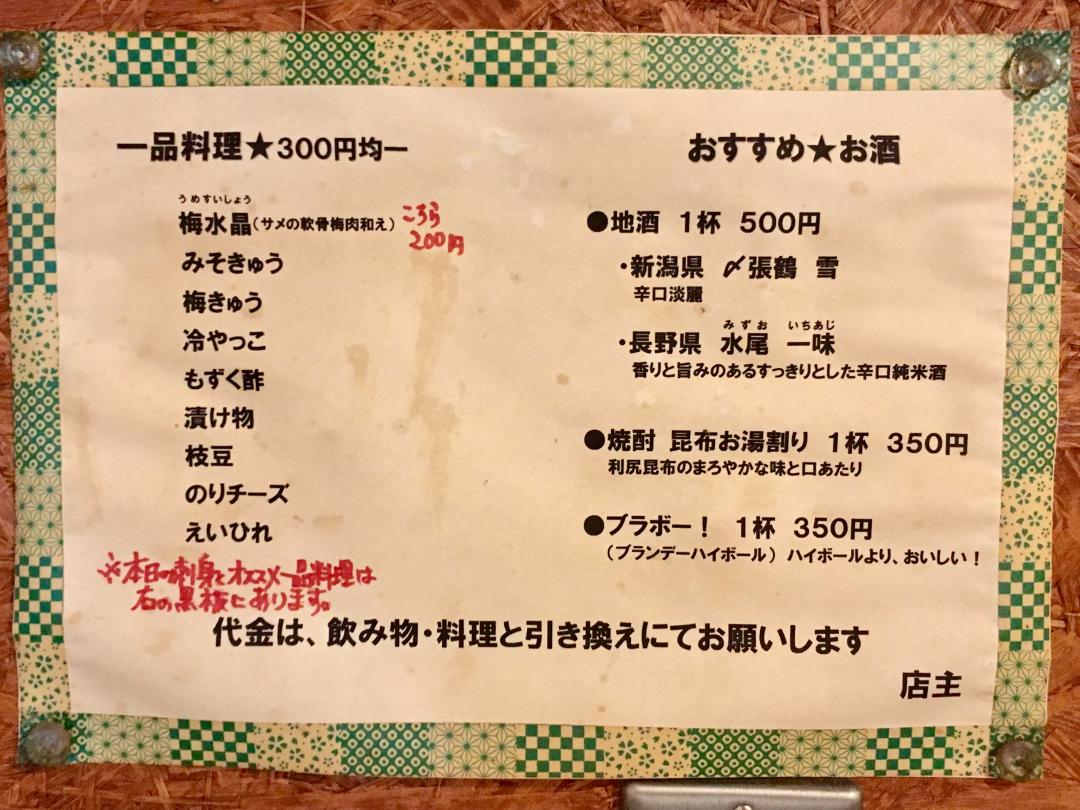 一品料理★300円均一
うめすいしょう
梅水晶(サメの軟骨梅肉和え)
こちら
200円
みそきゅう
梅きゅう
冷やっこ
もずく酢
漬け物
枝豆
のりチーズ
えいひれ
※本日の刺身とオススメ一品料理は
右の黒板にあります。
おすすめ★お酒
●地酒 1杯 500円
・新潟県 〆張鶴 雪
辛口淡麗
みずお いちあじ
・長野県 水尾 一味
香りと旨みのあるすっきりとした辛口純米酒
●焼酎 昆布お湯割り 1杯 350円
利尻昆布のまろやかな味と口あたり
●ブラボー! 1杯 350円
(ブランデーハイボール) ハイボールより、おいしい!
代金は、飲み物・料理と引き換えにてお願いします
店主